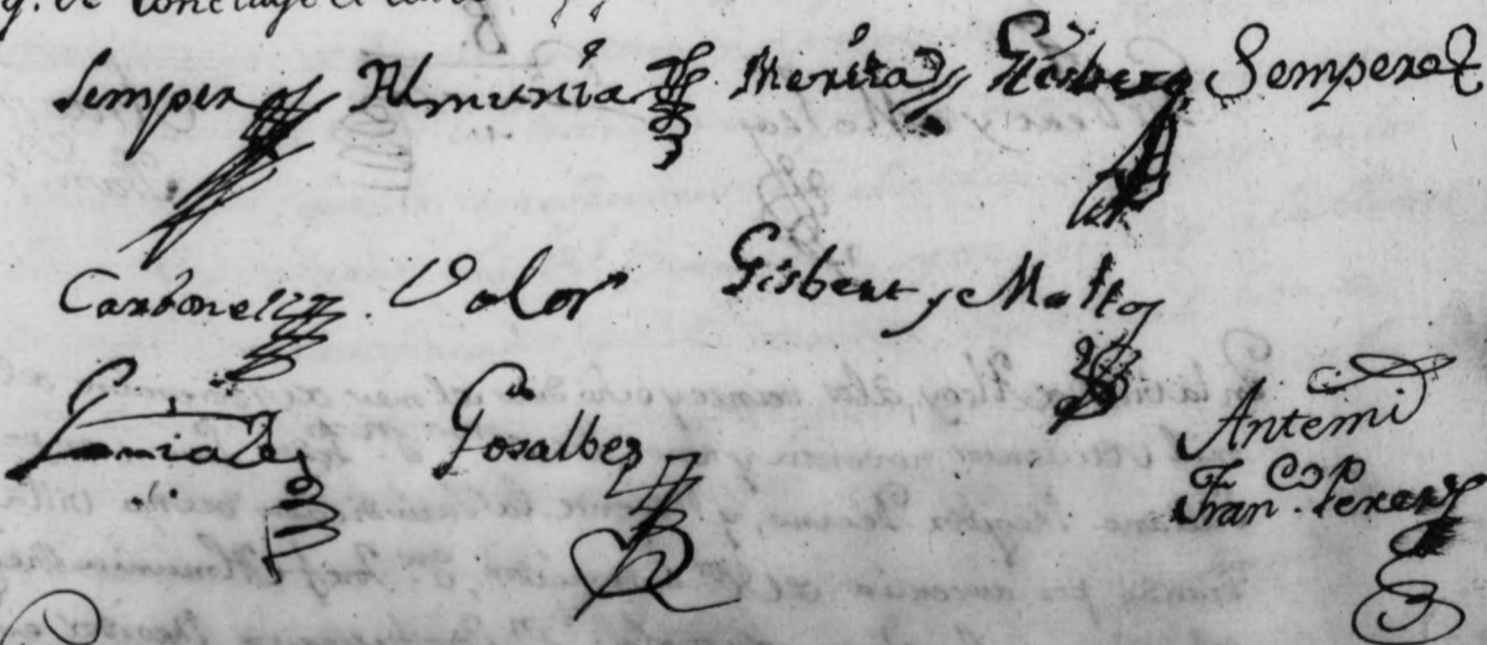 Semper Almunia Merita Gisbert Semperet
Carbonell Valor Gisbert y Molto
Gosalbez
Antemi
Fran.co Perez